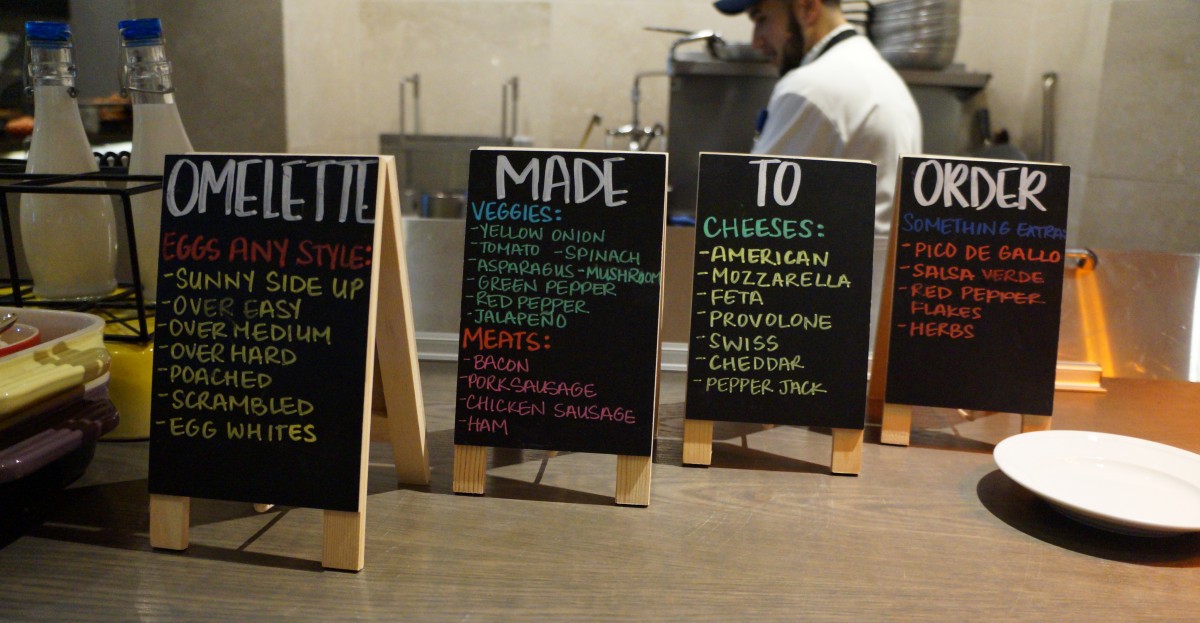 OMELETTE
EGGS ANY STYLE:
-SUNNY SIDE UP
-OVER EASY
-OVER MEDIUM
-OVER HARD
-POACHED
-SCRAMBLED
-EGG WHITES
MADE
VEGGIES:
-YELLOW ONION
-TOMATO -SPINACH
-ASPARAGUS -MUSHROOM
-GREEN PEPPER
-RED PEPPER
-JALAPEÑO
MEATS:
-BACON
-PORK SAUSAGE
-CHICKEN SAUSAGE
-HAM
TO
CHEESES:
-AMERICAN
-MOZZARELLA
-FETA
-PROVOLONE
-SWISS
-CHEDDAR
-PEPPER JACK
ORDER
SOMETHING EXTRA:
-PICO DE GALLO
-SALSA VERDE
-RED PEPPER
FLAKES
-HERBS